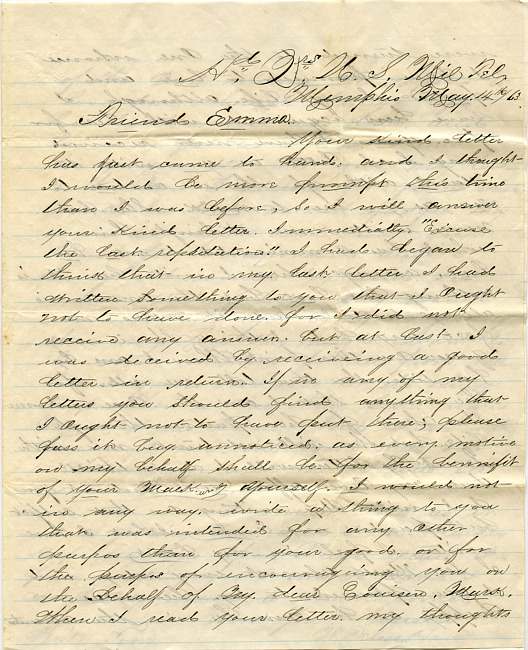 Hd. Qrs. U. S. Mil Tel
Memphis May 14th/63
Friend Emma.
Your kind letter
has just come to hand. and I thought
I would be more prompt this time
than I was before, So I will answer
your kind letter. Immediatly. "Excuse
the last repetation." I had began to
think that in my last letter I had
written something to you that I ought
not to have done. for I did not
receive any answer. but at last I
was deceived by receiveing a good
letter in return. If in any of my
letters you should find anything that
I ought not to have put there; please
pass it buy unnoticed. as every motive
on my behalf shall be for the bennifit
of your and yourself. I would not
in any way. write a thing to you
that was intended for any other
purpos than for your good. or for
the purpos of encourageing you on
the behalf of My dear Cousin.
When I read your letter. my thoughts